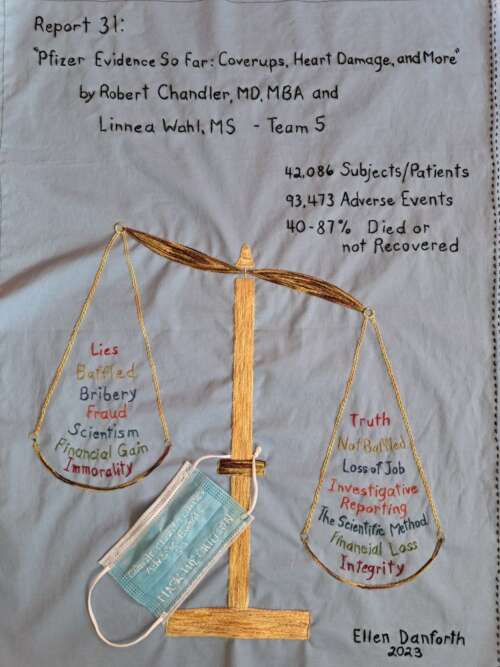 Report 31:
"Pfizer Evidence So Far: Coverups, Heart Damage, and More"
by Robert Chandler, MD, MBA and
Linnea Wahl, MS - Team 5
42,086 Subjects/Patients
93,473 Adverse Events
40-87% Died or
not Recovered
Lies
Baffled
Bribery
Fraud
Scientism
Financial Gain
Immorality
Truth
Not Baffled
Loss of Job
Investigative
Reporting
The Scientific Method
Financial Loss
Integrity
Ellen Danforth
2023